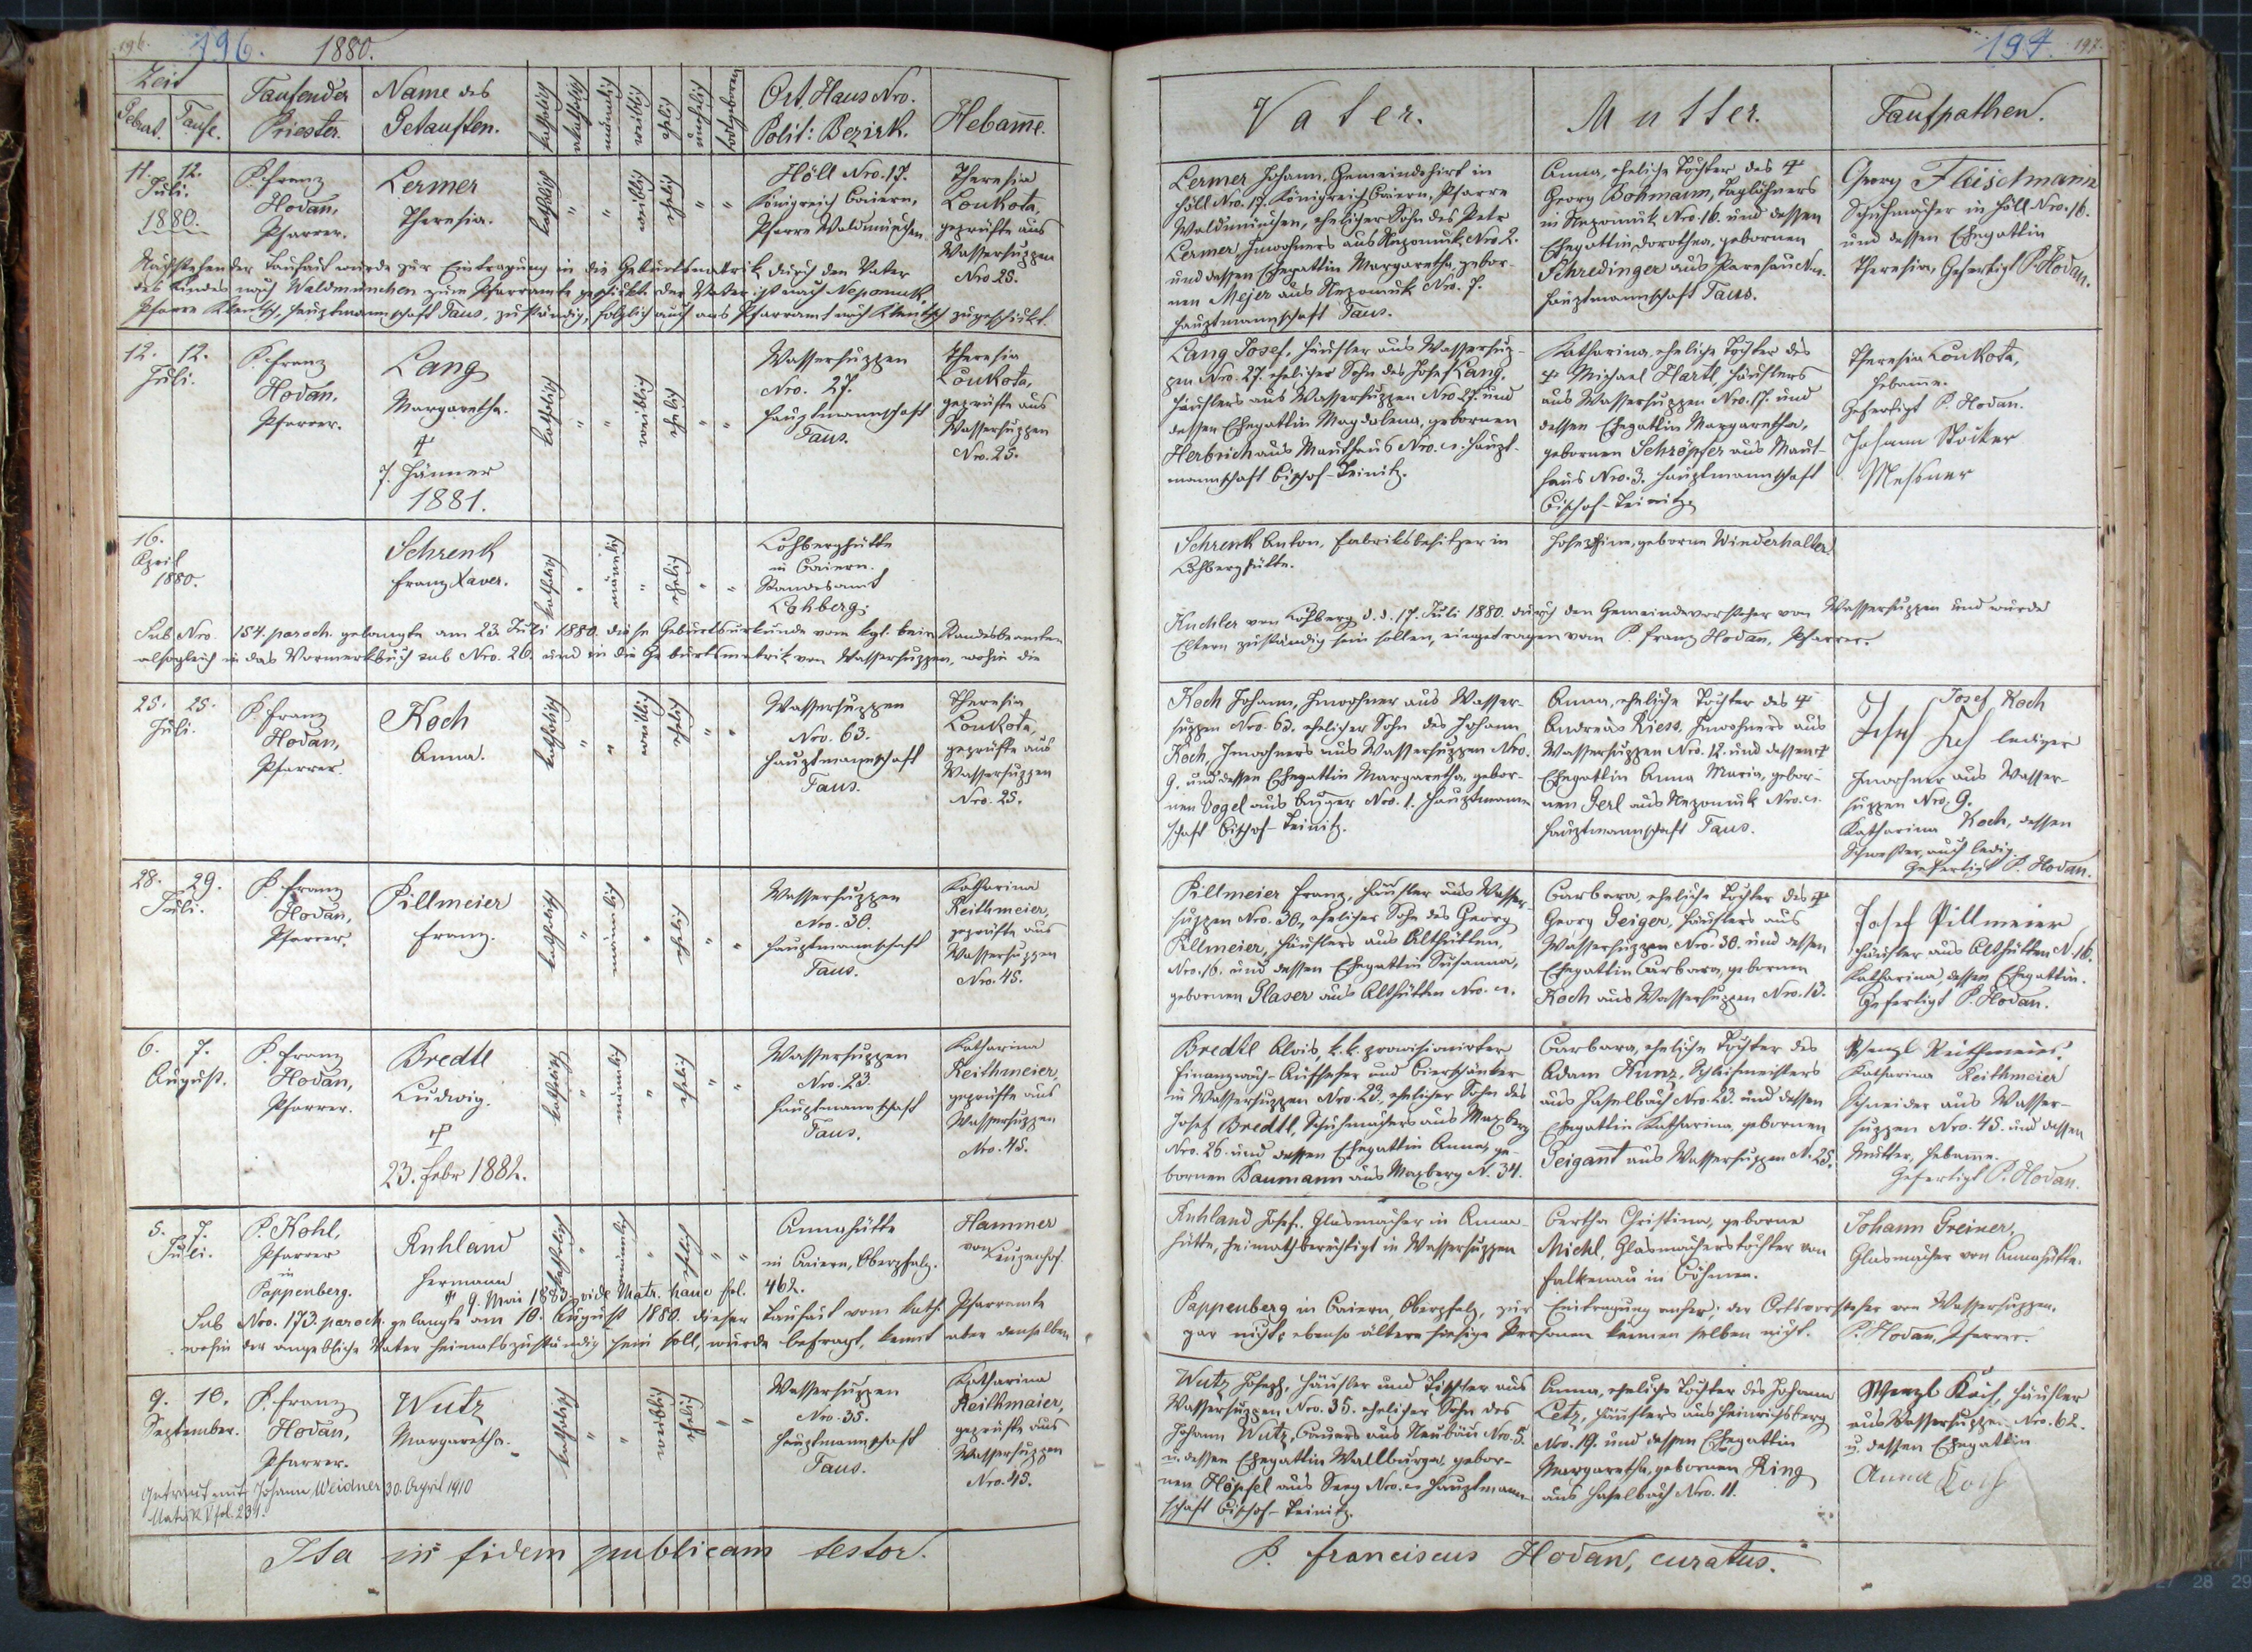 196.
196.
1880.
Zeit
Geburt.
Taufe.
Taufender
Priester.
Name des
Getauften.
katholisch
akatholisch
männlich
weiblich
ehelich
unehelich
todtgeboren
Ort, Haus Nro.
Polit: Bezirk.
Hebamme.
11. 12.
Juli.
1880.
P. Franz
Hodan,
Pfarrer.
Lermer
Theresia.
katholisch
"
"
weiblich
ehelich
"
"
Höll Nro. 17.
Königreich Baiern,
Pfarre Waldmünchen.
Theresia
Loukota,
geprüfte aus
Wassersuppen
Nro 25.
Nachstehender Taufact wurde zur Eintragung in die Geburtsmatrik durch den Vater
des Kindes nach Waldmünchen zum Pfarramte geschickt. Der Vater ist nach Nepomuk,
Pfarre Klentsch, Hauptmannschaft Taus, zuständig, folglich auch ans Pfarramt nach Klentsch zugeschickt.
12. 12.
Juli.
P. Franz
Hodan,
Pfarrer.
Lang
Margaretha.
†
7. Jänner
1881.
katholisch
"
"
weiblich
ehelich
"
"
Wassersuppen
Nro. 27.
Hauptmannschaft
Taus.
Theresia
Loukota,
geprüfte aus
Wassersuppen
Nro. 25.
16.
April
1880.
Schrenk
Franz Xaver.
katholisch
"
männlich
"
ehelich
"
"
Lohberghütte
in Baiern.
Standesamt
Lohberg.
Sub Nro. 154. paroch. gelangte am 23. Juli 1880. diese Geburtsurkunde vom kgl. bair. Standesbeamten
alsogleich in das Vormerkbuch sub Nro. 26. und in die Geburtsmatrik von Wassersuppen, wohin die
25. 25.
Juli.
P. Franz
Hodan,
Pfarrer.
Koch
Anna.
katholisch
"
"
weiblich
ehelich
"
"
Wassersuppen
Nro. 63.
Hauptmannschaft
Taus.
Theresia
Loukota,
geprüfte aus
Wassersuppen
Nro. 25.
28. 29.
Juli.
P. Franz
Hodan,
Pfarrer.
Pillmeier
Franz.
katholisch
"
männlich
"
ehelich
"
"
Wassersuppen
Nro. 30.
Hauptmannschaft
Taus.
Katharina
Reithmeier,
geprüfte aus
Wassersuppen
Nro. 45.
6. 7.
August.
P. Franz
Hodan,
Pfarrer.
Bredtl
Ludwig.
†
23. Febr 1882.
katholisch
"
männlich
"
ehelich
"
"
Wassersuppen
Nro. 23.
Hauptmannschaft
Taus.
Katharina
Reithmeier,
geprüfte aus
Wassersuppen
Nro. 45.
5. 7.
Juli.
P. Kohl,
Pfarrer
in
Pappenberg.
Ruhland
Hermann
katholisch
"
männlich
"
ehelich
"
"
Annahütte
in Baiern, Oberpfalz.
Hammer
von
† 9. Mai 1883. vide Matr. hanc fol. 462.
Sub Nro. 173. paroch. gelangte am 10. August 1880. dieser Taufact vom kath. Pfarramte
wohin der angebliche Vater heimatszuständig sein soll, wurde befragt, kennt aber denselben
9. 10.
September.
P. Franz
Hodan,
Pfarrer.
Wutz
Margaretha.
katholisch
"
"
weiblich
ehelich
"
"
Wassersuppen
Nro. 35.
Hauptmannschaft
Taus.
Katharina
Reithmaier,
geprüfte aus
Wassersuppen
Nro. 45.
Getraut mit Johann Weidner 30. April 1910
Matrik V fol. 231.
Ita in fidem publicam testor.
197.
197.
Vater.
Mutter.
Taufpathen.
Lermer Johann, Gemeindehirt in
Höll Nro. 17. Königreich Baiern, Pfarre
Waldmünchen, ehelicher Sohn des Petr
Lermer, Inwohners aus Nepomuk Nro 2.
und dessen Ehegattin Margaretha, gebor-
nen Mejer aus Nepomuk Nro. 7.
Hauptmannschaft Taus.
Anna, eheliche Tochter des †
Georg Bohmann, Taglöhners
in Nepomuk Nro. 16. und dessen
Ehegattin Dorothea, gebornen
Schredinger aus
Hauptmannschaft Taus.
Georg Fleischmann
Schuhmacher in Höll Nro. 16.
und dessen Ehegattin
Theresia, Gefertigt P. Hodan.
Lang Josef, Häusler aus Wassersup-
pen Nro. 27. ehelicher Sohn des Josef Lang,
Häuslers aus Wassersuppen Nro 27. und
dessen Ehegattin Magdalena, gebornen
Herbrich aus Mauthaus Nro. n. Haupt-
mannschaft Bischof-Teinitz.
Katharina, eheliche Tochter des
† Michael Hartl, Häuslers
aus Wassersuppen Nro. 17. und
dessen Ehegattin Margaretha,
gebornen Schröpfer aus Maut-
haus Nro. 3. Hauptmannschaft
Bischof-Teinitz.
Theresia Loukota,
Hebamme.
Gefertigt P. Hodan.
Johann Stocker
Messner
Schrenk Anton, Fabriksbesitzer in
Lohberghütte.
Josephine, geborne Winderhalter.
Kuchler von Lohberg d. d. 17. Juli 1880. durch den Gemeindevorsteher von Wassersuppen und wurde
Eltern zuständig sein sollen, eingetragen vom P. Franz Hodan, Pfarrer.
Koch Johann, Inwohner aus Wasser-
suppen Nro. 63. ehelicher Sohn des Johann
Koch, Inwohners aus Wassersuppen Nro.
9. und dessen Ehegattin Margaretha, gebor-
nen Vogel aus Nro. 1. Hauptmann-
schaft Bischof-Teinitz.
Anna, eheliche Tochter des †
Andreas Riess, Inwohners aus
Wassersuppen Nro. 12. und dessen †
Ehegattin Anna Maria, gebor-
nen Gerl aus Nepomuk Nro. n.
Hauptmannschaft Taus.
Josef Koch
Josef Koch lediger
Inwohner aus Wasser-
suppen Nro. 9.
Katharina Koch, dessen
Schwester, auch ledig.
Gefertigt P. Hodan.
Pillmeier Franz, Häusler aus Wasser-
suppen Nro. 30., ehelicher Sohn des Georg
Pillmeier, Häuslers aus Althütten,
Nro. 16. und dessen Ehegattin Susanna,
gebornen Glaser aus Althütten Nro. n.
Barbara, eheliche Tochter des †
Georg Geiger, Häuslers aus
Wassersuppen Nro. 30. und dessen
Ehegattin Barbara, gebornen
Koch aus Wassersuppen Nro. 13.
Josef Pillmeier
Häusler aus Althütten N. 16.
Katharina, dessen Ehegattin.
Gefertigt P. Hodan.
Bredtl Alois, k. k. provisionirter
Finanzwach-Aufseher und Bierschänker
in Wassersuppen Nro. 23., ehelicher Sohn des
Josef Bredtl, Schuhmachers aus Maxberg
Nro. 26. und dessen Ehegattin Anna, ge-
bornen Baumann aus Maxberg N. 34.
Barbara, eheliche Tochter des
Adam Kunz, Schleifmeisters
aus Haselbach Nro. 23. und dessen
Ehegattin Katharina, gebornen
Geigant aus Wassersuppen N. 25.
Wenzl Reithmeier,
Katharina Reithmeier
Schneider aus Wasser-
suppen Nro. 45. und dessen
Mutter, Hebamme.
Gefertigt P. Hodan.
Ruhland Josef, Glasmacher in Anna-
hütte, heimathberechtigt in Wassersuppen
Bertha Christina, geborne
Michl, Glasmacherstochter von
Falkenau in Böhmen.
Johann Greiner,
Glasmacher von Annahütte.
Pappenberg in Baiern, Oberpfalz, zur Eintragung anher; der Ortsvorsteher von Wassersuppen,
gar nicht; ebenso ältere hiesige Personen kennen selben nicht. P. Hodan, Pfarrer.
Wutz Joseph, Häusler und Tischler aus
Wassersuppen Nro. 35. ehelicher Sohn des
Johann Wutz, Bauers aus Neubäu Nro. 5.
u. dessen Ehegattin Wallburga, gebor-
nen Höpfel aus Seeg Nro. n Hauptmann-
schaft Bischof-Teinitz.
Anna, eheliche Tochter des Johann
Letz, Häuslers aus Heinrichsberg
Nro. 19. und dessen Ehegattin
Margaretha, gebornen Ring
aus Haselbach Nro. 11.
Wenzl Häusler
aus Wassersuppen Nro. 62.
u. dessen Ehegattin
Anna
P. Franciscus Hodan, curatus.
27 28 29